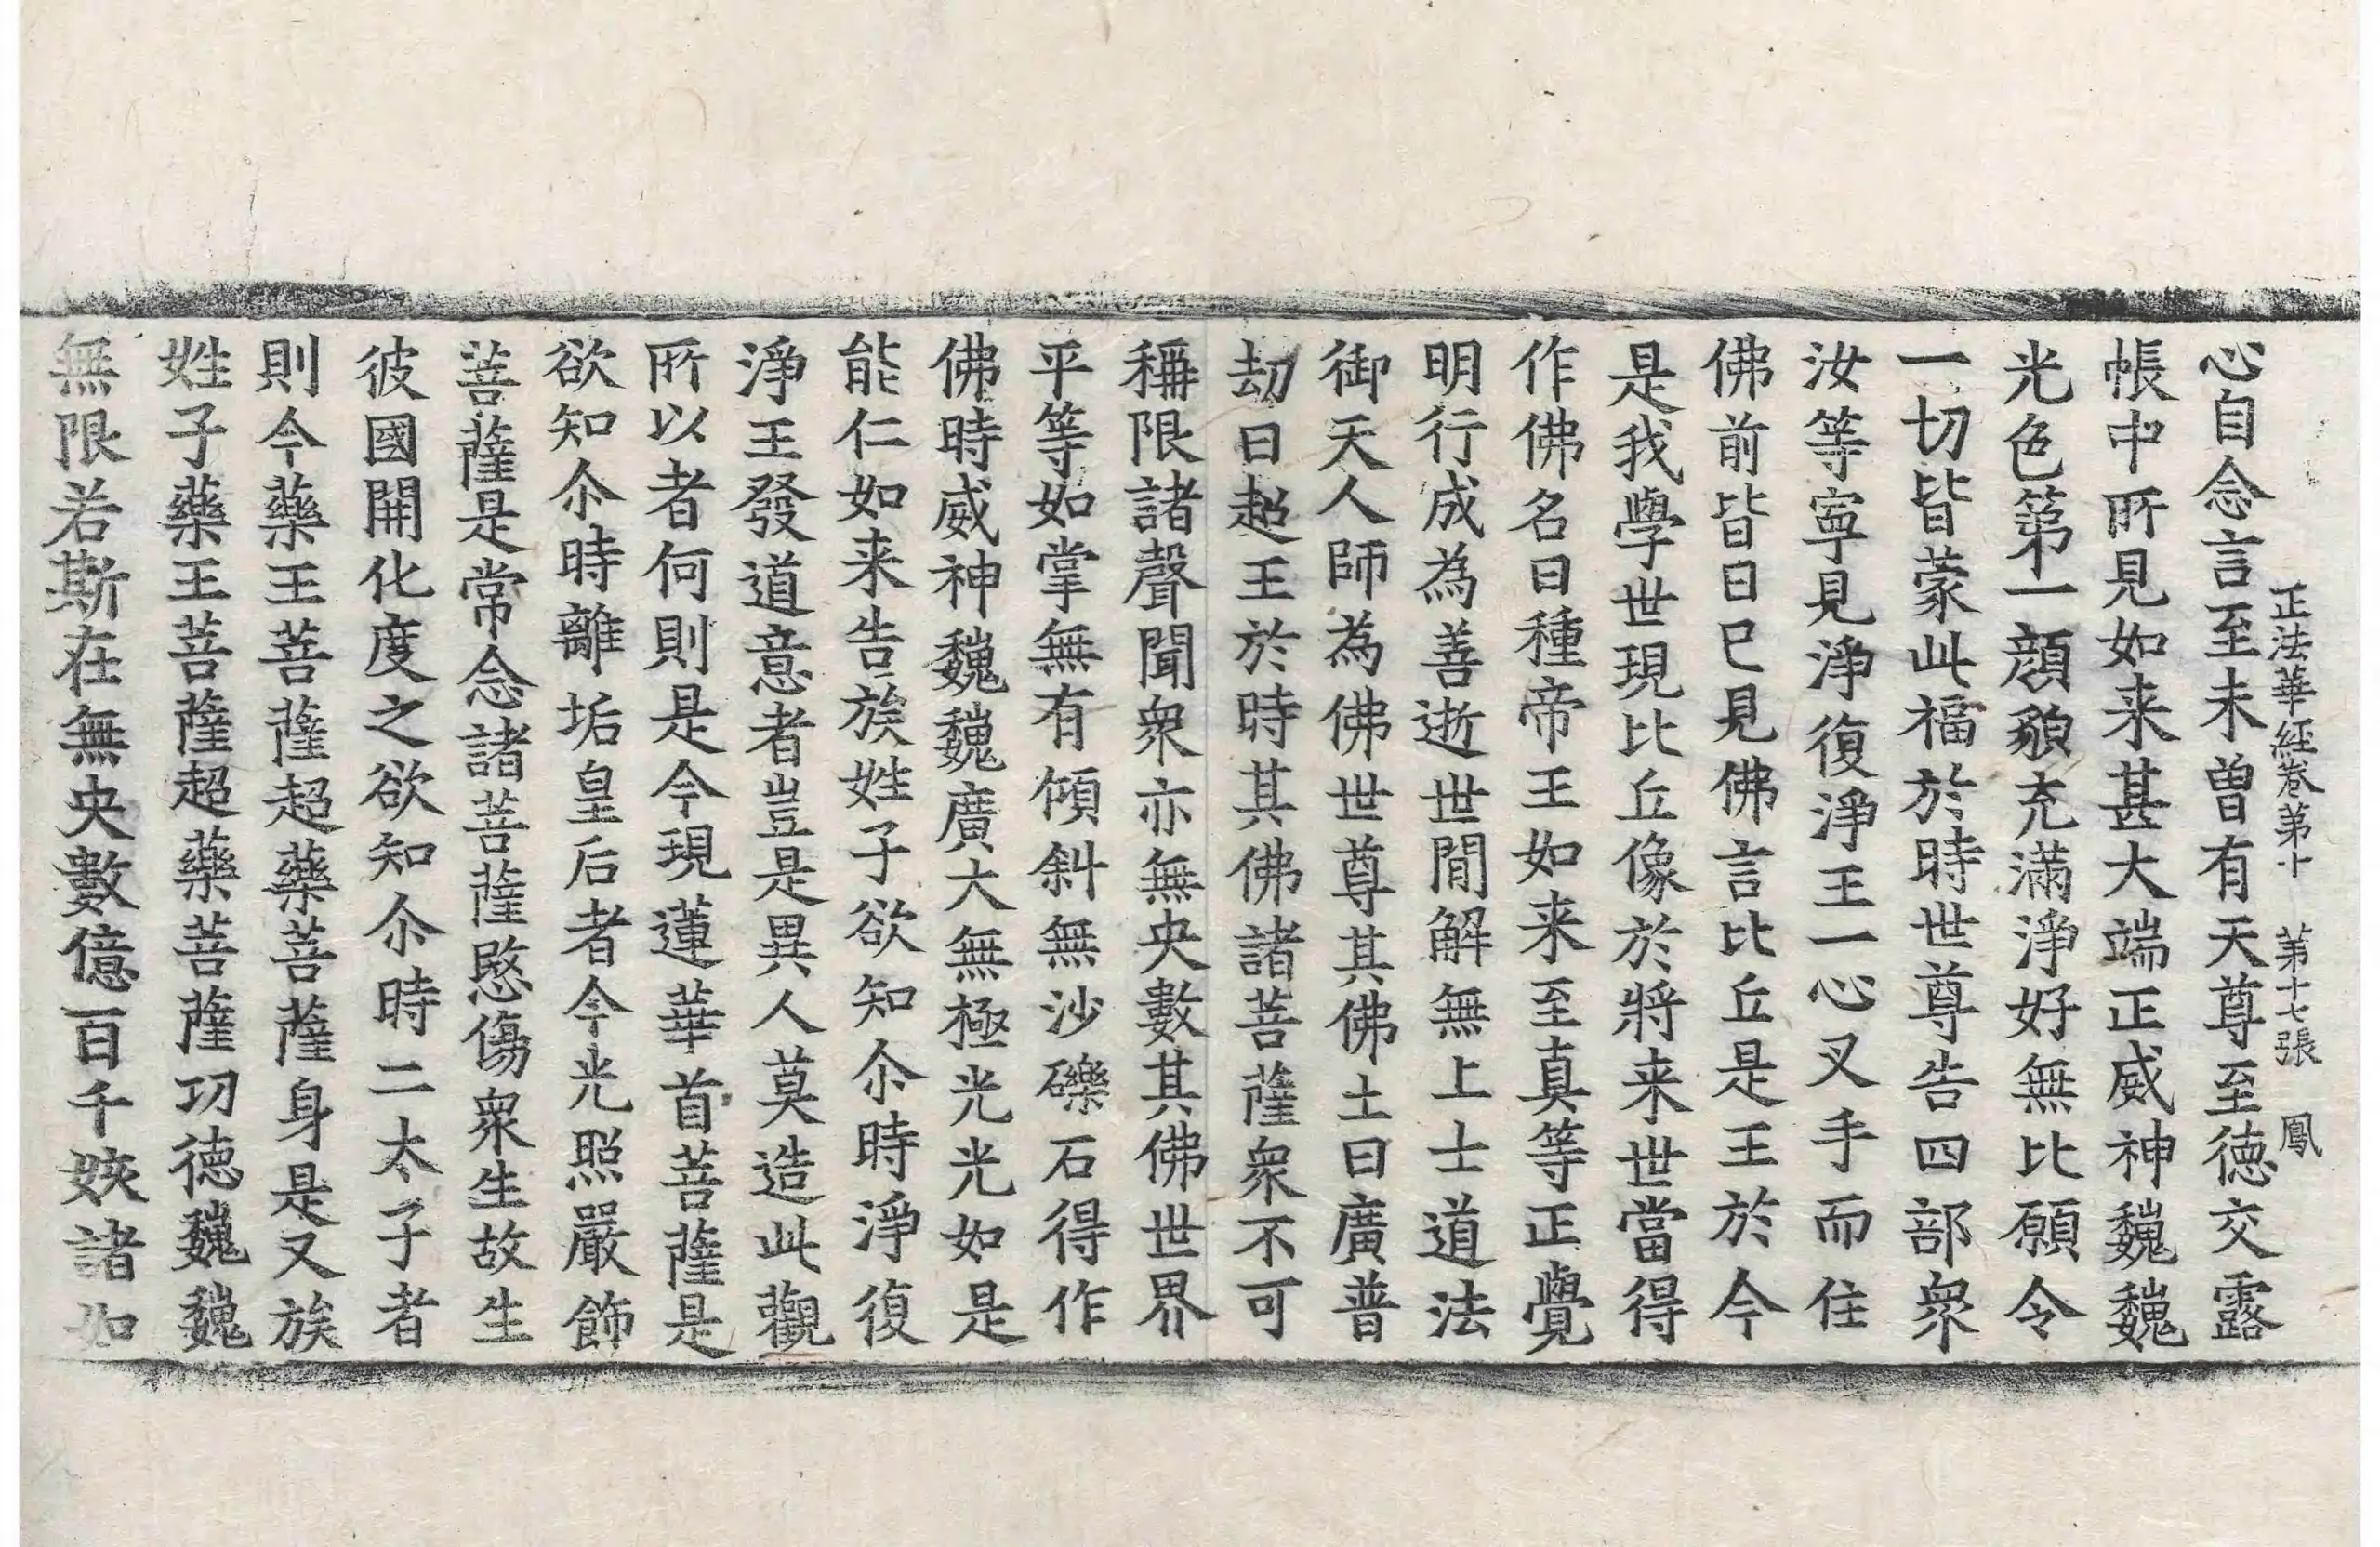 正法華経卷第十　第十七張　鳳
心自念言至未曽有天尊至德交露
帳中所見如来甚大端正威神巍巍
光色第一顔貌充滿淨好無比願令
一切皆蒙此福於時世尊告四部衆
汝等寧見淨復淨王一心叉手而住
佛前皆曰已見佛言比丘是王於今
是我學世現比丘像於將来世當得
作佛名曰種帝王如来至真等正覺
明行成為善逝世間解無上士道法
御天人師為佛世尊其佛土曰廣普
劫曰超王於時其佛諸菩薩衆不可
稱限諸聲聞衆亦無央數其佛世界
平等如掌無有傾斜無沙礫石得作
佛時威神巍巍廣大無極光光如是
能仁如来告族姓子欲知尒時淨復
淨王發道意者豈是異人莫造此觀
所以者何則是今現蓮華首菩薩是
欲知尒時離垢皇后者今光照嚴飾
菩薩是常念諸菩薩愍傷衆生故生
彼國開化度之欲知尒時二太子者
則今藥王菩薩超藥菩薩身是又族
姓子藥王菩薩超藥菩薩功德巍巍
無限若斯在無央數億百千姟諸如